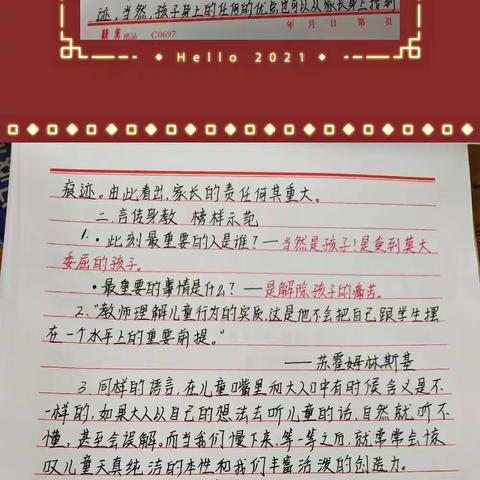 迹，当然，孩子身上的任何的优点也可以从家长身上找到
纸品 C0697 年 月 日 第 页
Hello 2021
痕迹。由此看出，家长的责任何其重大。
二、言传身教 榜样示范
1.·此刻最重要的人是谁？—当然是孩子！是受到莫大
委屈的孩子。
·最重要的事情是什么？—是解除孩子的痛苦。
2."教师理解儿童行为的实质，这是他不会把自己跟学生摆
在一个水平上的重要前提。"
——苏霍姆林斯基
3.同样的语言，在儿童口嘴里和大人口中有时候含义是不
一样的，如果大人以自己的想法去听儿童的话，自然就听不
懂，甚至会误解。而当我们慢下来，等一等之后，就常常会惊
叹儿童天真纯洁的本性和我们丰富活泼的创造力。